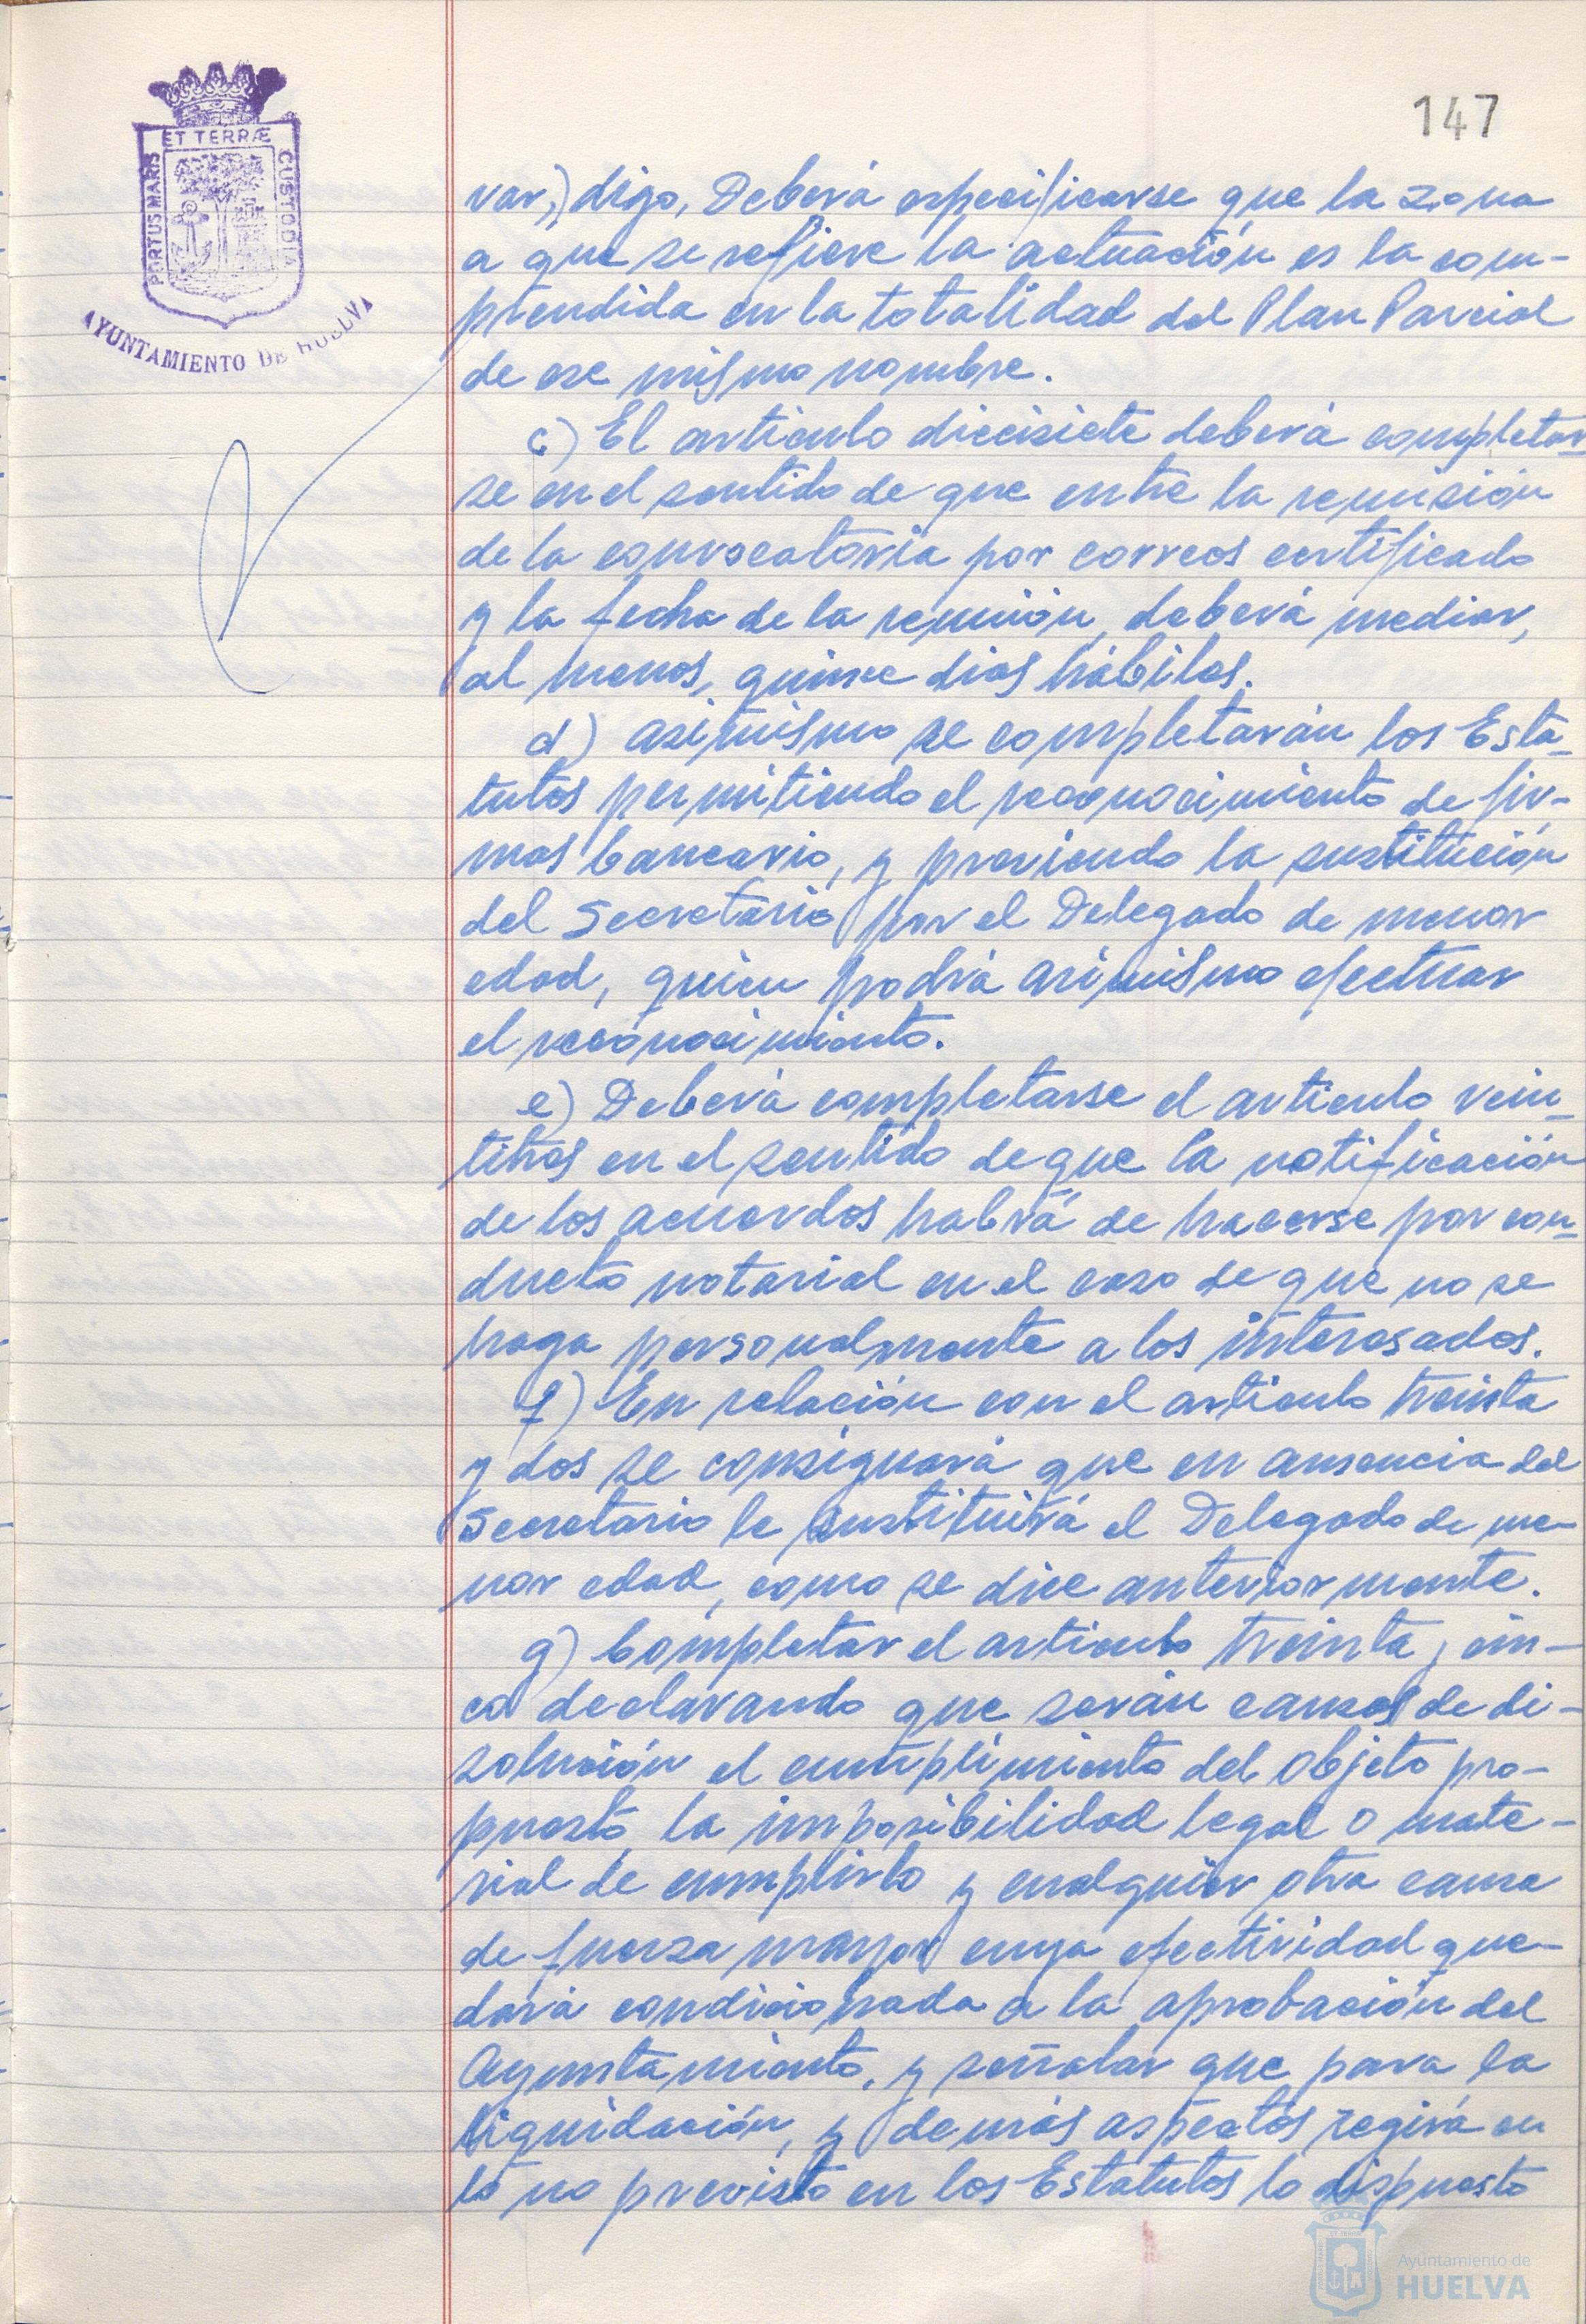 147
ET TERRÆ
PORTUS MARIS
CUSTODIA
AYUNTAMIENTO DE HUELVA
var,) digo, Deberá especificarse que la zona
a que se refiere la actuación es la com-
prendida en la totalidad del Plan Parcial
de ese mismo nombre.
c) El artículo diecisiete deberá completar
se en el sentido de que entre la remisión
de la convocatoria por correos certificado
y la fecha de la reunión, deberá mediar,
al menos, quince días hábiles.
d) asimismo se completarán los Esta-
tutos permitiendo el reconocimiento de fir-
mas bancario, y previendo la sustitución
del Secretario por el Delegado de menor
edad, quien podrá asimismo efectuar
el reconocimiento.
e) Deberá completarse el artículo vein-
titres en el sentido de que la notificación
de los acuerdos habrá de hacerse por con-
ducto notarial en el caso de que no se
haga personalmente a los interesados.
f) En relación con el artículo treinta
y dos se consignará que en ausencia del
Secretario le sustituirá el Delegado de me-
nor edad, como se dice anteriormente.
g) Completar el artículo treinta y cin-
co declarando que serán causas de di-
solución el cumplimiento del objeto pro-
puesto, la imposibilidad legal o mate-
rial de cumplirlo y cualquier otra causa
de fuerza mayor cuya efectividad que-
dará condicionada a la aprobación del
Ayuntamiento, y señalar que para la
liquidación, y demás aspectos regirá en
lo no previsto en los Estatutos lo dispuesto
Ayuntamiento de
HUELVA